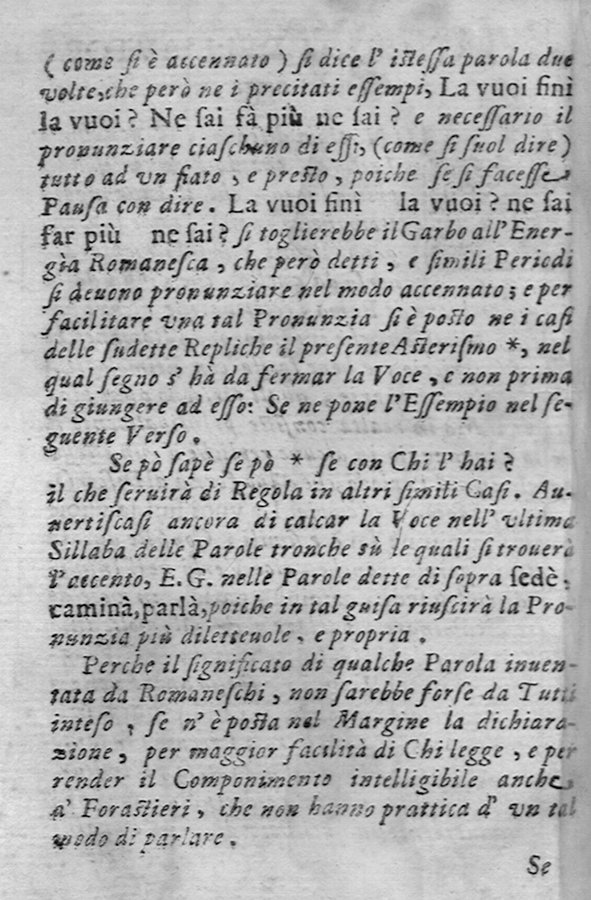 ( come si è accennato ) si dice l' istessa parola due
volte, che però ne i precitati essempi, La vuoi finì
la vuoi ? Ne sai fà più ne sai ? e necessario il
pronunziare ciaschuno di essi, (come si suol dire)
tutto ad vn fiato , e presto , poiche se si facesse
Pausa con dire . La vuoi finì la vuoi ? ne sai
far più ne sai ? si toglierebbe il Garbo all'Ener-
gìa Romanesca , che però detti , e simili Periodi
si deuono pronunziare nel modo accennato; e per
facilitare vna tal Pronunzia si è posto ne i casi
delle sudette Repliche il presente Asterismo *, nel
qual segno s' hà da fermar la Voce , e non prima
di giungere ad esso: Se ne pone l'Essempio nel se-
guente Verso .
Se pò sapè se pò * se con Chi l' hai ?
il che seruirà di Regola in altri simili Casi . Au-
uertiscasi ancora di calcar la Voce nell' vltima
Sillaba delle Parole tronche sù le quali si trouerà
l'accento, E. G. nelle Parole dette di sopra sedè,
caminà, parlà, poiche in tal guisa riuscirà la Pro-
nunzia più diletteuole , e propria .
Perche il significato di qualche Parola inuen-
tata da Romaneschi , non sarebbe forse da Tutti
inteso , se n' è posta nel Margine la dichiara-
zione , per maggior facilità di Chi legge , e per
render il Componimento intelligibile anche
a' Forastieri , che non hanno prattica d' vn tal
modo di parlare .
Se